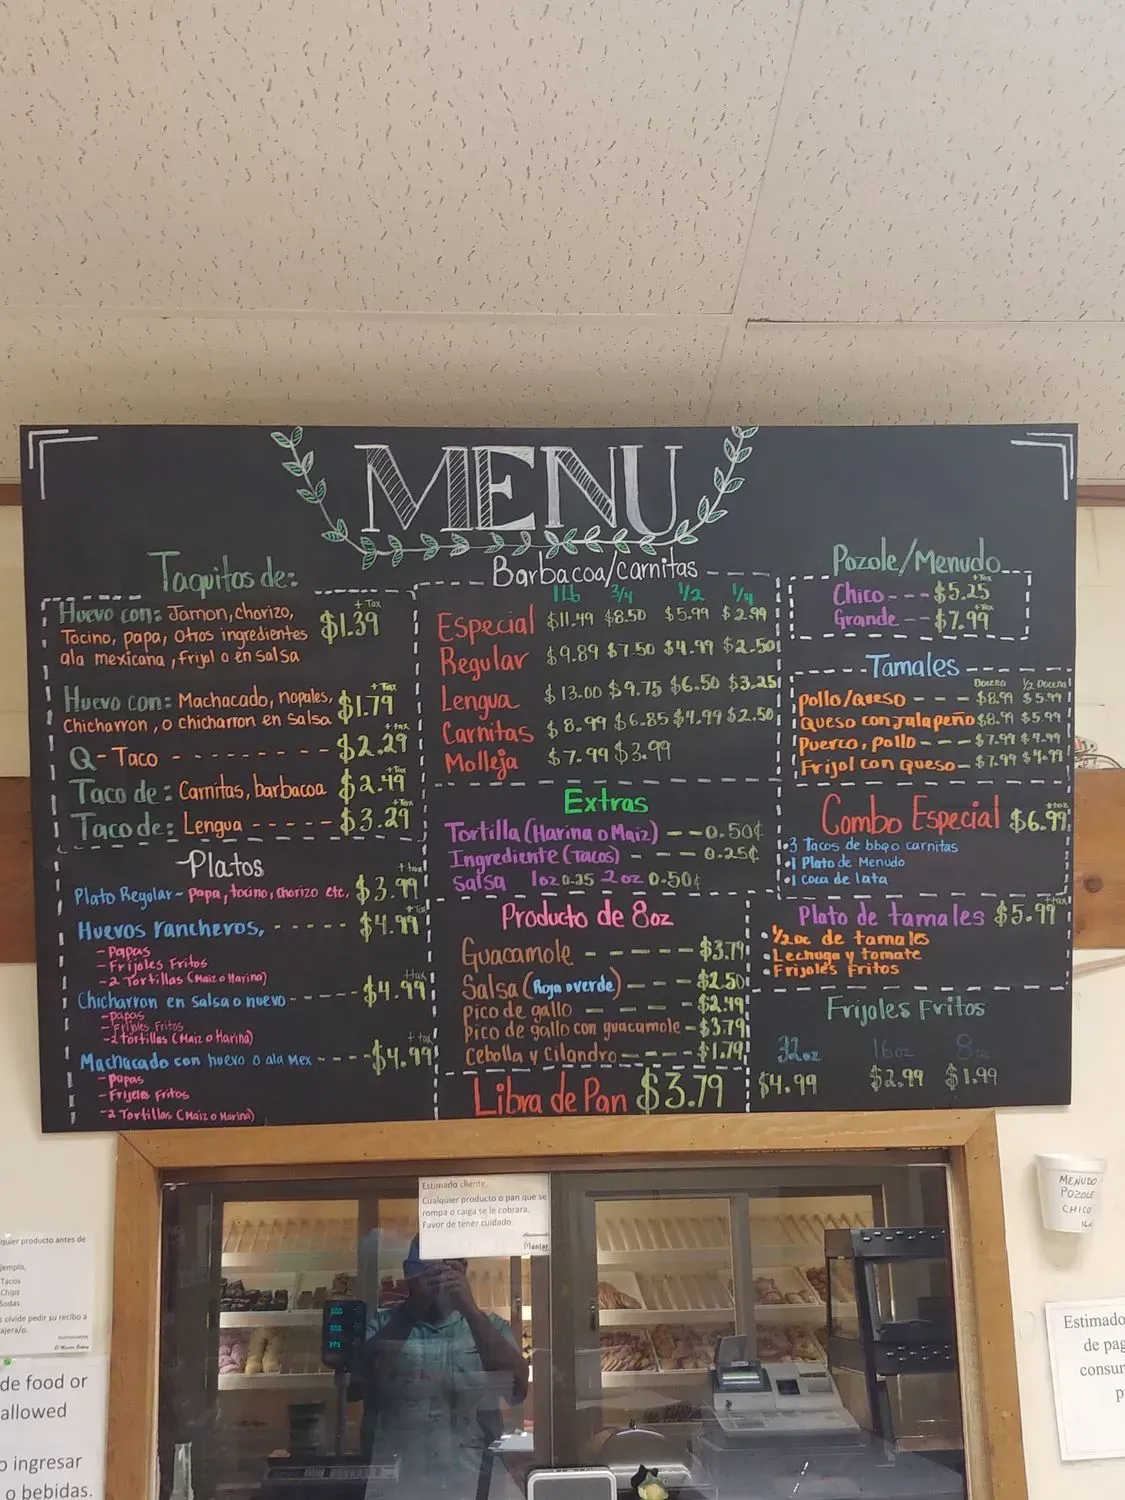 MENU
Taquitos de:
Huevo con: Jamon, chorizo,
Tocino, papa, otros ingredientes
ala mexicana, frijol o en salsa
+ Tax
$1.39
Huevo con: Machacado, nopales,
Chicharron, o chicharron en salsa
+ Tax
$1.79
Q-Taco - - - - - - - - - $2.29
+ tax
Taco de: Carnitas, barbacoa $2.49
+ tax
Taco de: Lengua - - - - - $3.29
+ tax
Platos
Plato Regular - papa, tocino, chorizo etc. $3.99
+ tax
Huevos rancheros, - - - - - $4.99
+ Tax
- Papas
- Frijoles Fritos
- 2 Tortillas (Maiz o Harina)
Chicharron en Salsa o huevo - - - - - $4.99
+ tax
- Papas
- Frijoles Fritos
- 2 tortillas (Maiz o Harina)
Machacado con huevo o ala Mex - - - - $4.99
+ tax
- Papas
- Frijoles Fritos
- 2 Tortillas (Maiz o Harina)
Barbacoa/carnitas
1Lb 3/4 1/2 1/4
Especial $11.49 $8.50 $5.99 $2.99
Regular $9.89 $7.50 $4.99 $2.50
Lengua $13.00 $9.75 $6.50 $3.25
Carnitas $8.99 $6.85 $4.99 $2.50
Molleja $7.99 $3.99
Extras
Tortilla (Harina o Maiz) - - 0.50¢
Ingrediente (Tacos) - - - 0.25¢
Salsa 1oz 0.25 2oz 0.50¢
Producto de 8oz
Guacamole - - - - $3.79
Salsa (Roja o verde) - - - $2.50
Pico de gallo - - - - $2.49
Pico de gallo con guacamole - $3.79
Cebolla y Cilandro - - - - $1.79
Libra de Pan $3.79
Pozole/Menudo
Chico - - - $5.25
+ Tax
Grande - - $7.99
+ Tax
Tamales
Docena 1/2 Docena
Pollo/Queso - - - $8.99 $5.99
Queso con Jalapeño $8.99 $5.99
Puerco, Pollo - - - $7.99 $4.99
Frijol con Queso - $7.99 $4.99
Combo Especial $6.99
+ tax
• 3 Tacos de bbq o carnitas
• 1 Plato de Menudo
• 1 Coca de lata
Plato de tamales $5.99
+ tax
• 1/2 Dc de tamales
• Lechuga y tomate
• Frijoles Fritos
Frijoles Fritos
32oz 16oz 8oz
$4.99 $2.99 $1.99
Estimado cliente,
Cualquier producto o pan que se
rompa o caiga se le cobrara.
Favor de tener cuidado.
Manjar
MENUDO
POZOLE
CHICO
quier producto antes de
jemplo,
Tacos
Chips
Sodas
s olvide pedir su recibo a
ajera/o.
de food or
allowed
o ingresar
o bebidas.
Estimado
de pag
consum
p